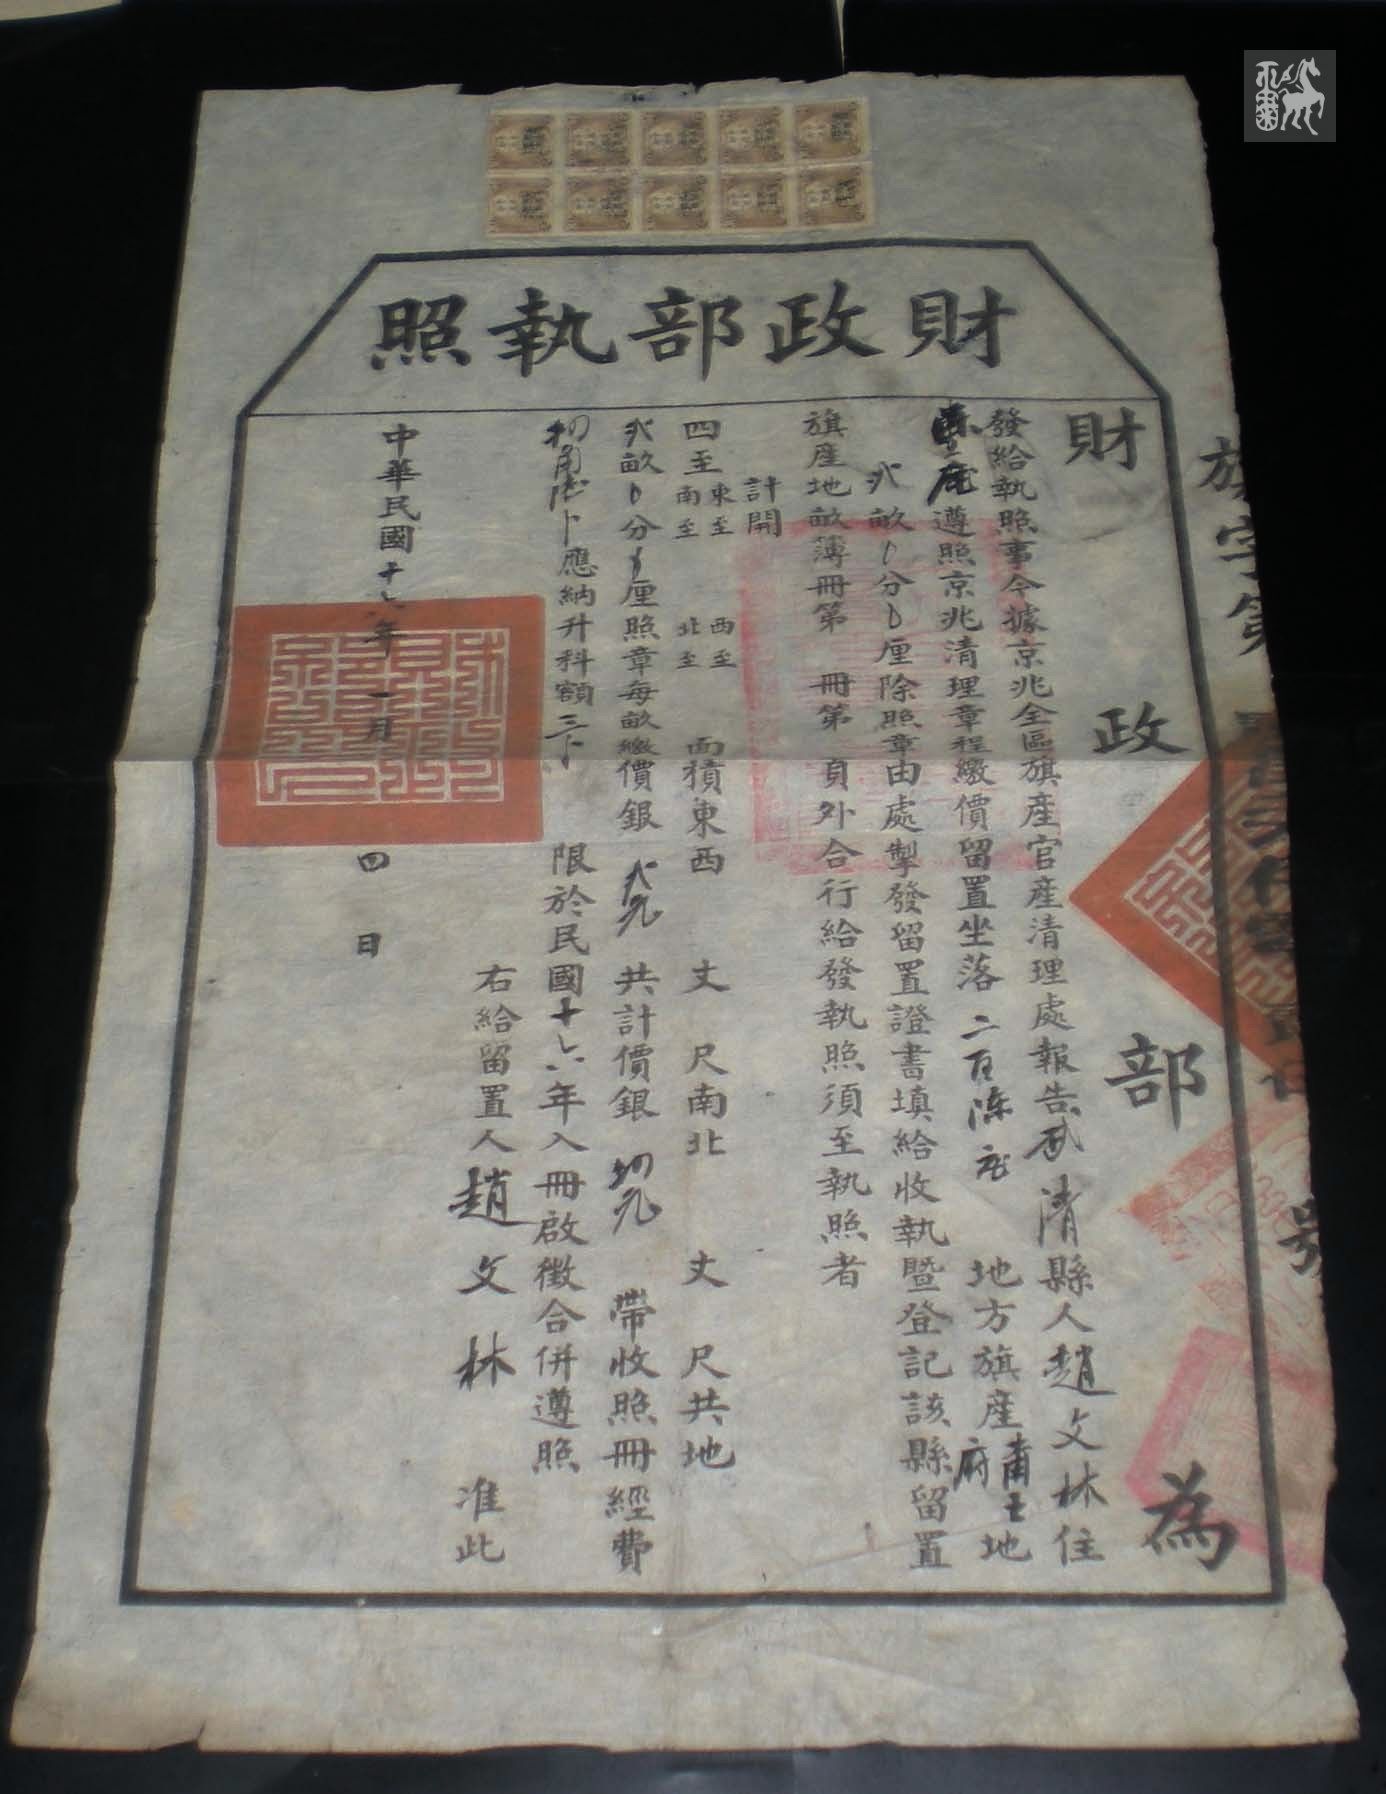 財政部執照
財政部為
發給執照事今據京兆全區旗產官產清理處報告武清縣人趙文林住
遵照京兆清理章程繳價留置坐落二百 地方旗產 王府地
畝 分 厘除照章由處掣發留置證書填給收執暨登記該縣留置
旗產地畝薄冊第 冊第 頁外合行給發執照須至執照者
計開
四至東至 西至 南至 北至 面積東西 丈 尺南北 丈 尺共地
畝 分 厘照章每畝繳價銀 元 共計價銀 元 帶收照冊經費
應納升科額 限於民國十六年入冊啟徵合併遵照
右給留置人趙文林 准此
中華民國十六年一月四日
旗字第 號